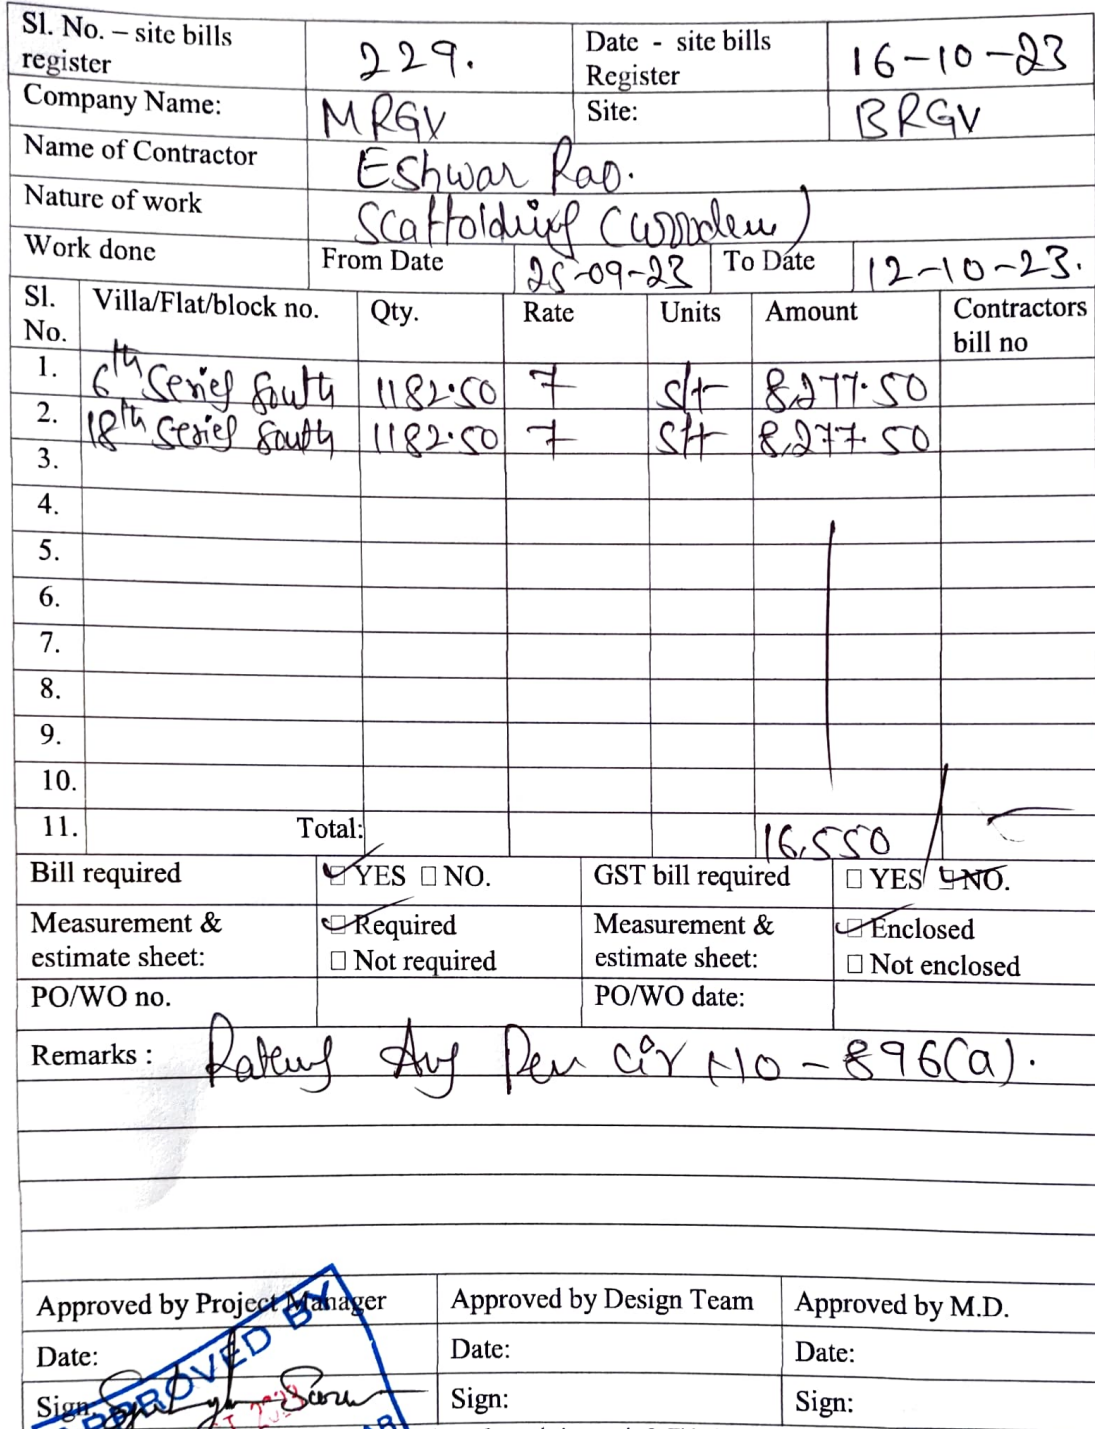 Sl. No. – site bills register 229. Date - site bills Register 16-10-23
Company Name: MRGV Site: BRGV
Name of Contractor Eshwar Rao.
Nature of work Scaffolding (wooden)
Work done From Date 25-09-23 To Date 12-10-23.
Sl. No. Villa/Flat/block no. Qty. Rate Units Amount Contractors bill no
1. 6th Series South 1182.50 7 sft 8,277.50
2. 18th Series South 1182.50 7 sft 8,277.50
3.
4.
5.
6.
7.
8.
9.
10.
11. Total: 16,550
Bill required YES NO. GST bill required YES NO.
Measurement & estimate sheet: Required Not required Measurement & estimate sheet: Enclosed Not enclosed
PO/WO no. PO/WO date:
Remarks : Per Cir No - 896(a).
Approved by Project Manager Approved by Design Team Approved by M.D.
Date: Date: Date:
Sign: Sign: Sign:
APPROVED BY